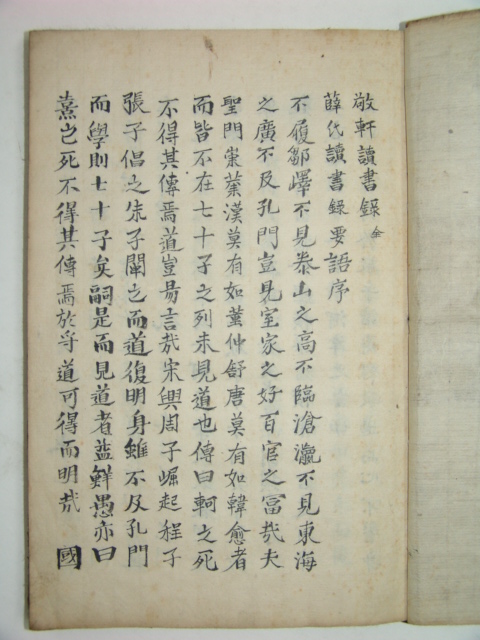 敬軒讀書錄 全
薛氏讀書錄要語序
不履鄒嶧不見泰山之高不臨滄瀛不見東海
之廣不及孔門豈見室家之好百官之冨哉夫
聖門崇業漢莫有如董仲舒唐莫有如韓愈者
而皆不在七十子之列未見道也傳曰軻之死
不得其傳焉道豈易言哉宋興周子崛起程子
張子倡之朱子闡之而道復明身雖不及孔門
而學則七十子矣嗣是而見道者益鮮愚亦曰
熹之死不得其傳焉於乎道可得而明哉 國